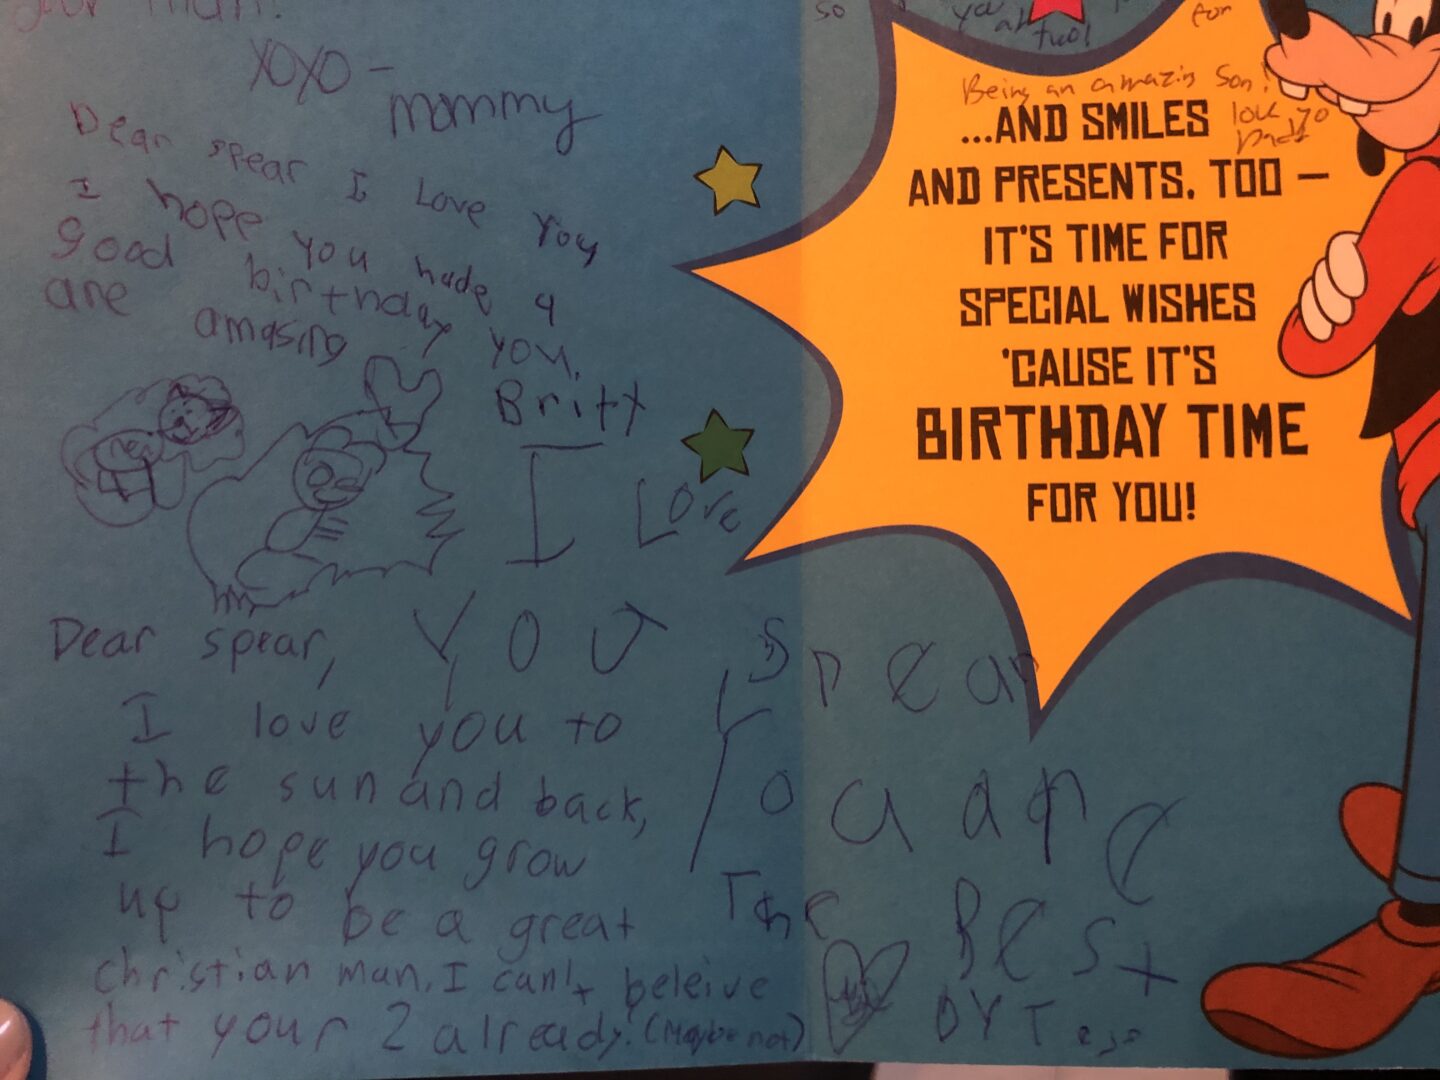 XOXO -
mommy
Dear spear I Love You
I hope you hade a
good birthday you
are amasing you.
Britt
I Love
YOU Spear
You are
The Best
BY Tess
Dear spear,
I love you to
the sun and back,
I hope you grow
up to be a great
christian man. I can't beleive
that your 2 already. (Maybe not)
so
for
Being an amazin Son!
...AND SMILES
AND PRESENTS, TOO —
IT'S TIME FOR
SPECIAL WISHES
'CAUSE IT'S
BIRTHDAY TIME
FOR YOU!